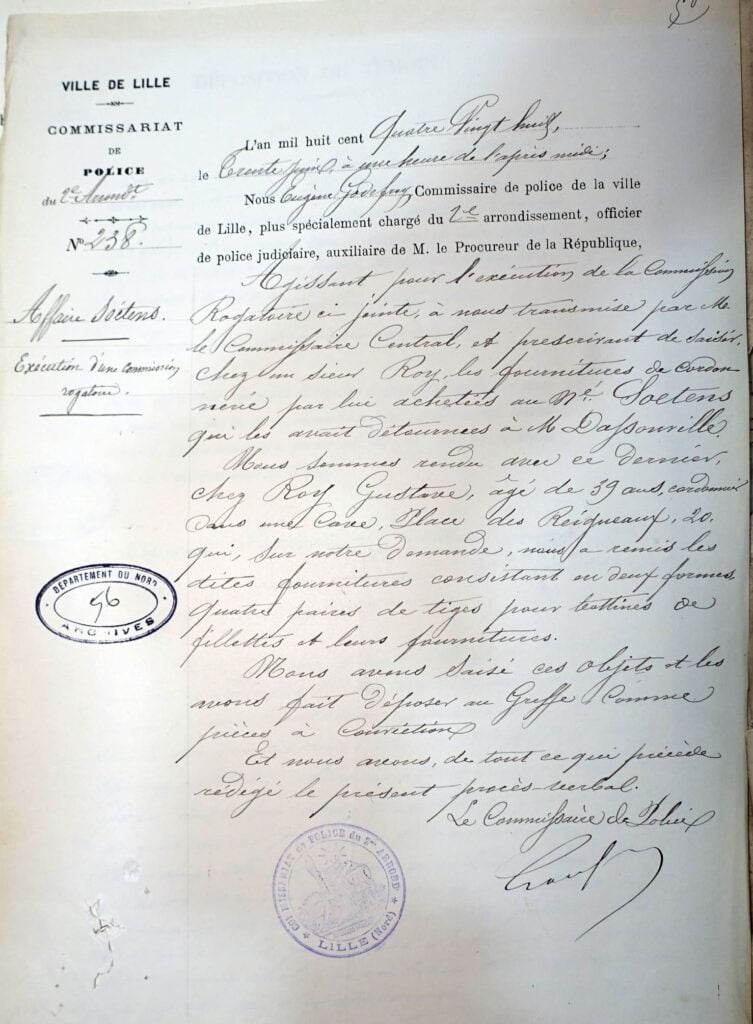 VILLE DE LILLE
COMMISSARIAT
DE
POLICE
du 2e Arrondt
No 238.
Affaire Soëtens.
Exécution d'une Commission
rogatoire.
L'an mil huit cent Quatre Vingt huit,
le Trente juin, à une heure de l'après midi;
Nous Eugène Godefroy Commissaire de police de la ville
de Lille, plus spécialement chargé du 2e arrondissement, officier
de police judiciaire, auxiliaire de M. le Procureur de la République,
Agissant pour l'exécution de la Commission
Rogatoire ci jointe, à nous transmise par M.
le Commissaire Central, et prescrivant de saisir,
chez un sieur Roy, les fournitures de cordon
nerie par lui achetées au Né Soetens
qui les avait détournées à M Dassonville.
Nous sommes rendu avec ce dernier,
chez Roy Gustave, âgé de 39 ans, cordonnier
dans une Cave, Place des Reigneaux, 20.
qui, sur notre demande, nous a remis les
dites fournitures consistant en deux formes,
quatre paires de tiges pour bottines de
fillettes et leurs fournitures.
Nous avons saisi ces objets et les
avons fait déposer au Greffe comme
pièces à Conviction
Et nous avons, de tout ce qui précède
rédigé le présent procès-verbal.
Le Commissaire de Police
DÉPARTEMENT DU NORD
56
ARCHIVES
COMMISSARIAT de POLICE du 2me ARROND't
LILLE (Nord)